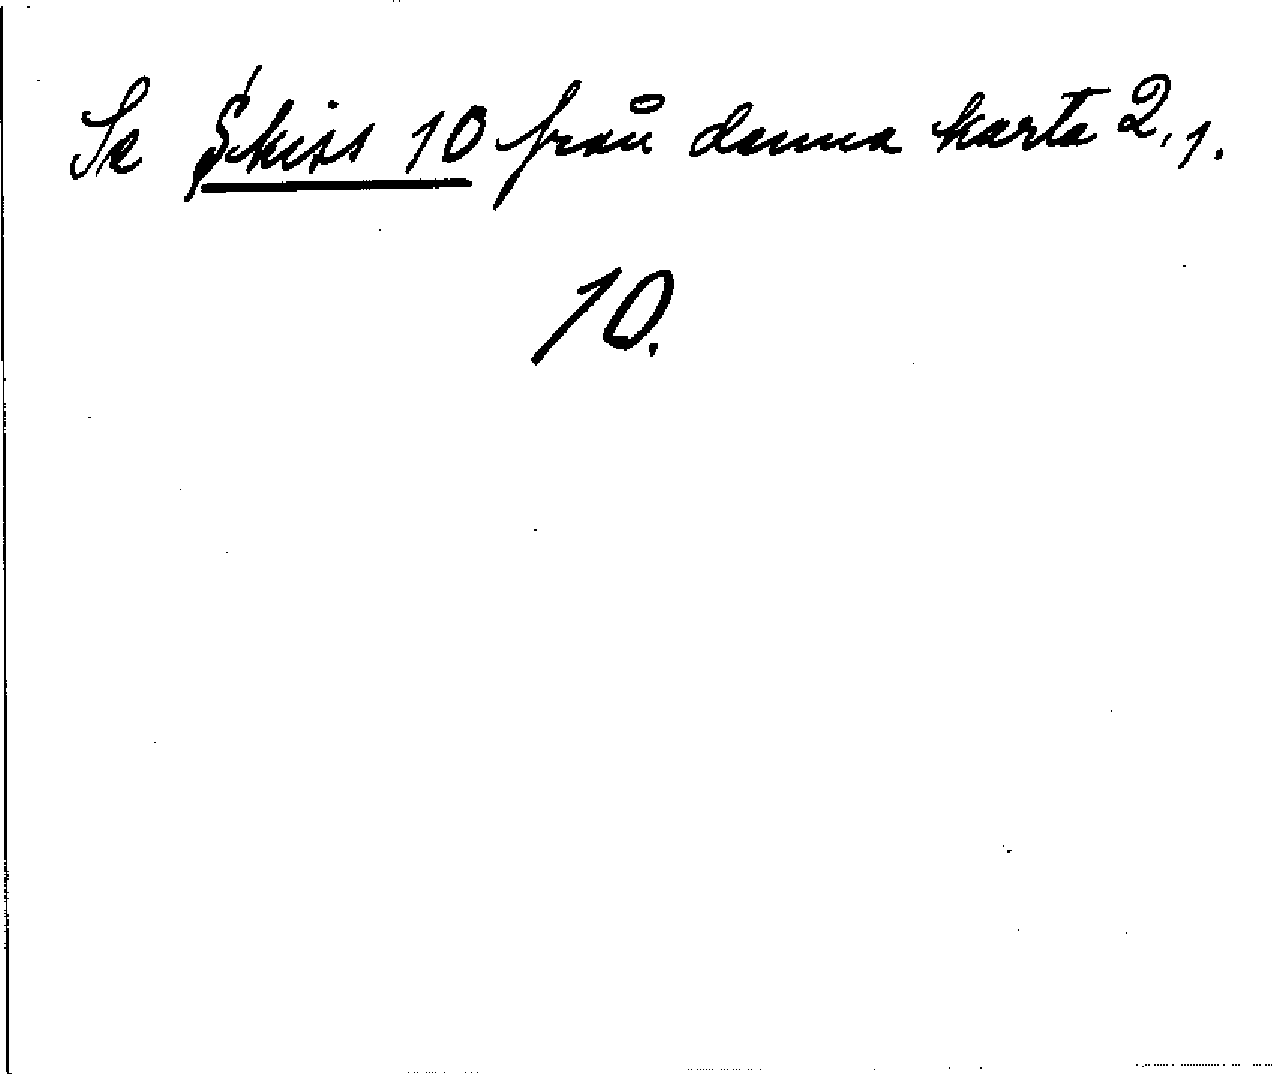 Se Skiss 10 från denna karta 2,1.
10.